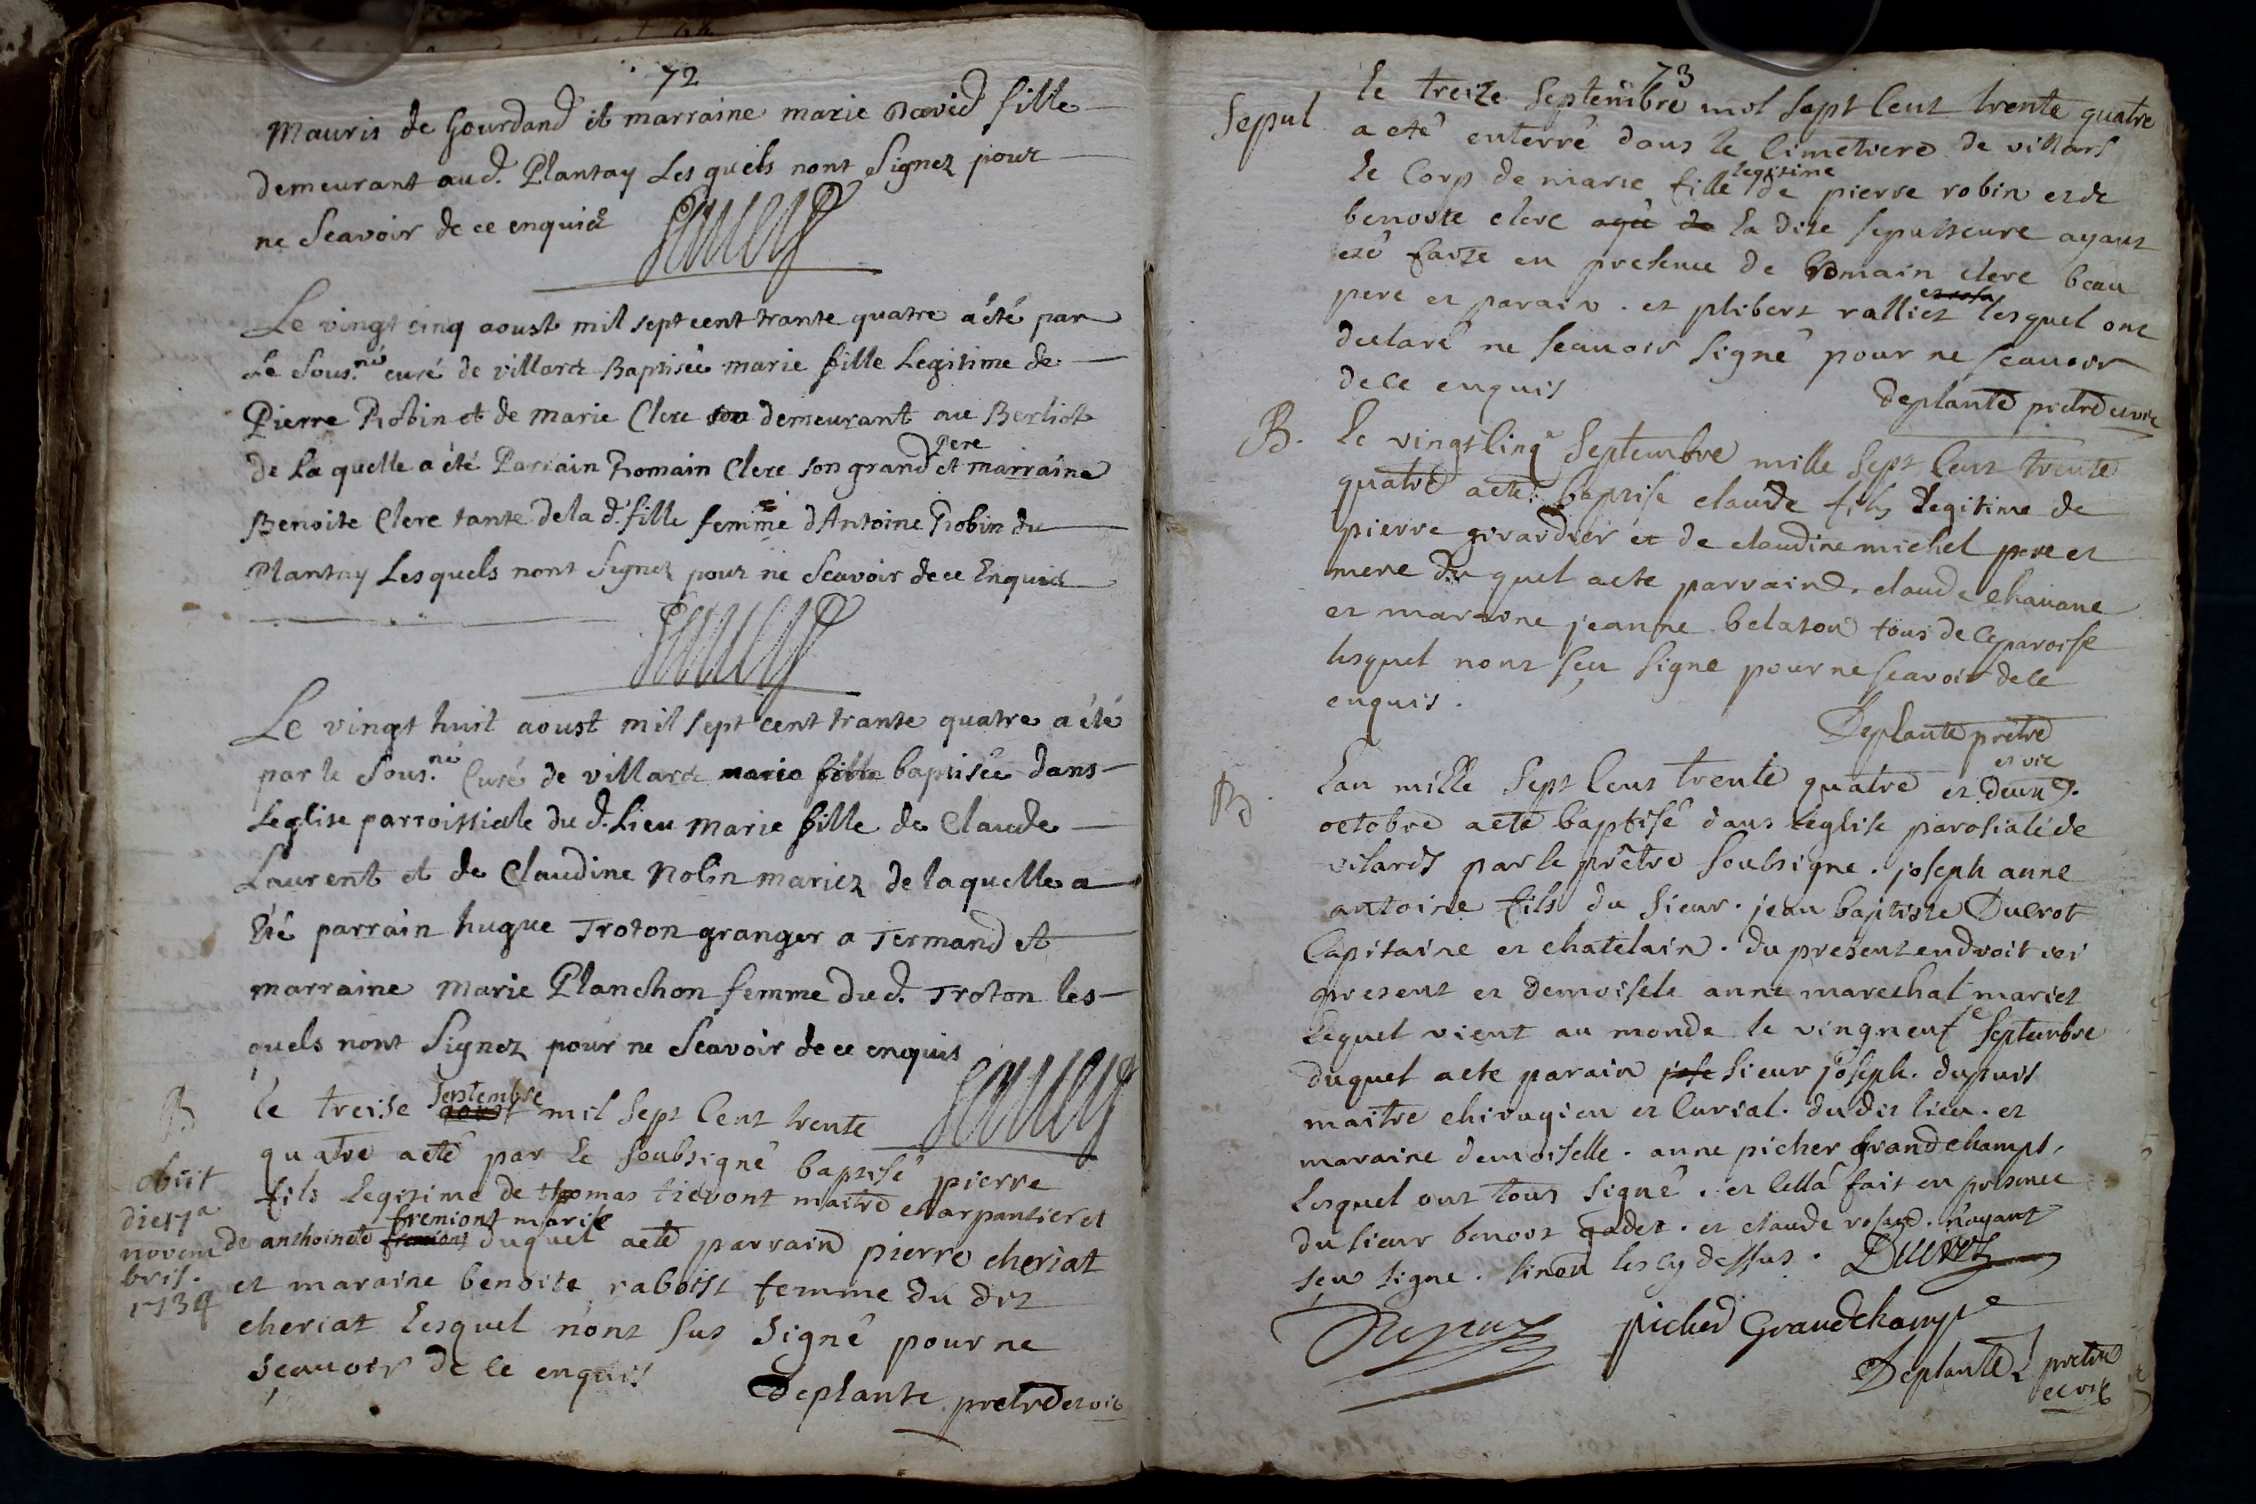 72
Mauris de Gourdand et marraine marie David fille
demeurant aud. Plantay Les quels nont Signez pour
ne Scavoir de ce enquis
Le vingt cinq aoust mil sept cent trante quatre a été par
Le Sous.né curé de villard Baptisée marie fille Legitime de
Pierre Robin et de marie Clerc demeurant au Berliot
de La quelle a été Parrain Romain Clerc son grand Pere et marraine
Benoite Clerc tante de la d. fille femme dAntoine Robin du
Plantay Lesquels nont Signez pour ne Scavoir de ce Enquis
Le vingt huit aoust mil sept cent trante quatre a été
par le Sous.né Curé de villard marie fille baptisée dans
Leglise parroissiale du d. Lieu marie fille de Claude
Laurent et de Claudine Nolin mariez de laquelle a
été parrain hugue Troton granger a Termand et
marraine Marie Planchon femme du d. Troton les-
quels nont Signez pour ne Scavoir de ce enquis
B
le treise Septembre aoust mil Sept Cent trente
quatre aeté par le soubsigné baptisé pierre
fils legitime de thomas tievont maitre charpantier et
de anthoinete fremiont marié duquel aeté parrain pierre cheriat
et maraine benoite raboist femme du dit
cheriat lesquel nont sus signé pour ne
sçauoir de ce enquis
Deplante pretre et vic
obiit
die 17a
novem
bris.
1734
73
Sepul
le treize Septembre mil sept Cent trente quatre
a eté enterré dans le Cimetiere de villars
le Corp de marie fille legitime de pierre robin et de
benoite clerc la dite sepulteure ayant
eté faite en presence de Romain clerc beau
pere et parain. et plibert ralliet lesquel ont
declaré ne scauoir signé pour ne scauoir
de ce enquis
deplante pretre et vic
B.
le vingt Cinqe Septembre mille Sept Cent trente
quatre aeté baptise claude fils legitime de
pierre girardier et de claudine michel pere et
mere du quel aeté parvaind. claude chauane
et maraine jeanne belaton tous de Ce paroise
lesquel nont sçu signe pour ne scavoir de ce
enquis.
Deplante pretre
et vic
B
Lan mille Sept Cent trente quatre et deux 9.
octobre aeté baptisé dans leglise parosiale de
vilards par le prêtre soubsigne. joseph anne
antoine fils du sieur. jean baptiste Ducrot
Capitaine et chatelain. du present endroit ici
present et demoisele anne marechal mariet
Lequel vient au monde le vingneufe Septembre
duquel aeté parain sieur joseph. dupuis
maitre chirugien et Curial. du dit lieu. et
maraine demoiselle. anne picher grandchamps,
lesquel ont tous signé. et Cella fait en presence
du sieur benoit gadet. et claude rosand. nayant
sçu signe. sinon les cy dessus. Ducrot
Dupuis
picher Grandchamps
Deplante pretre
et vic